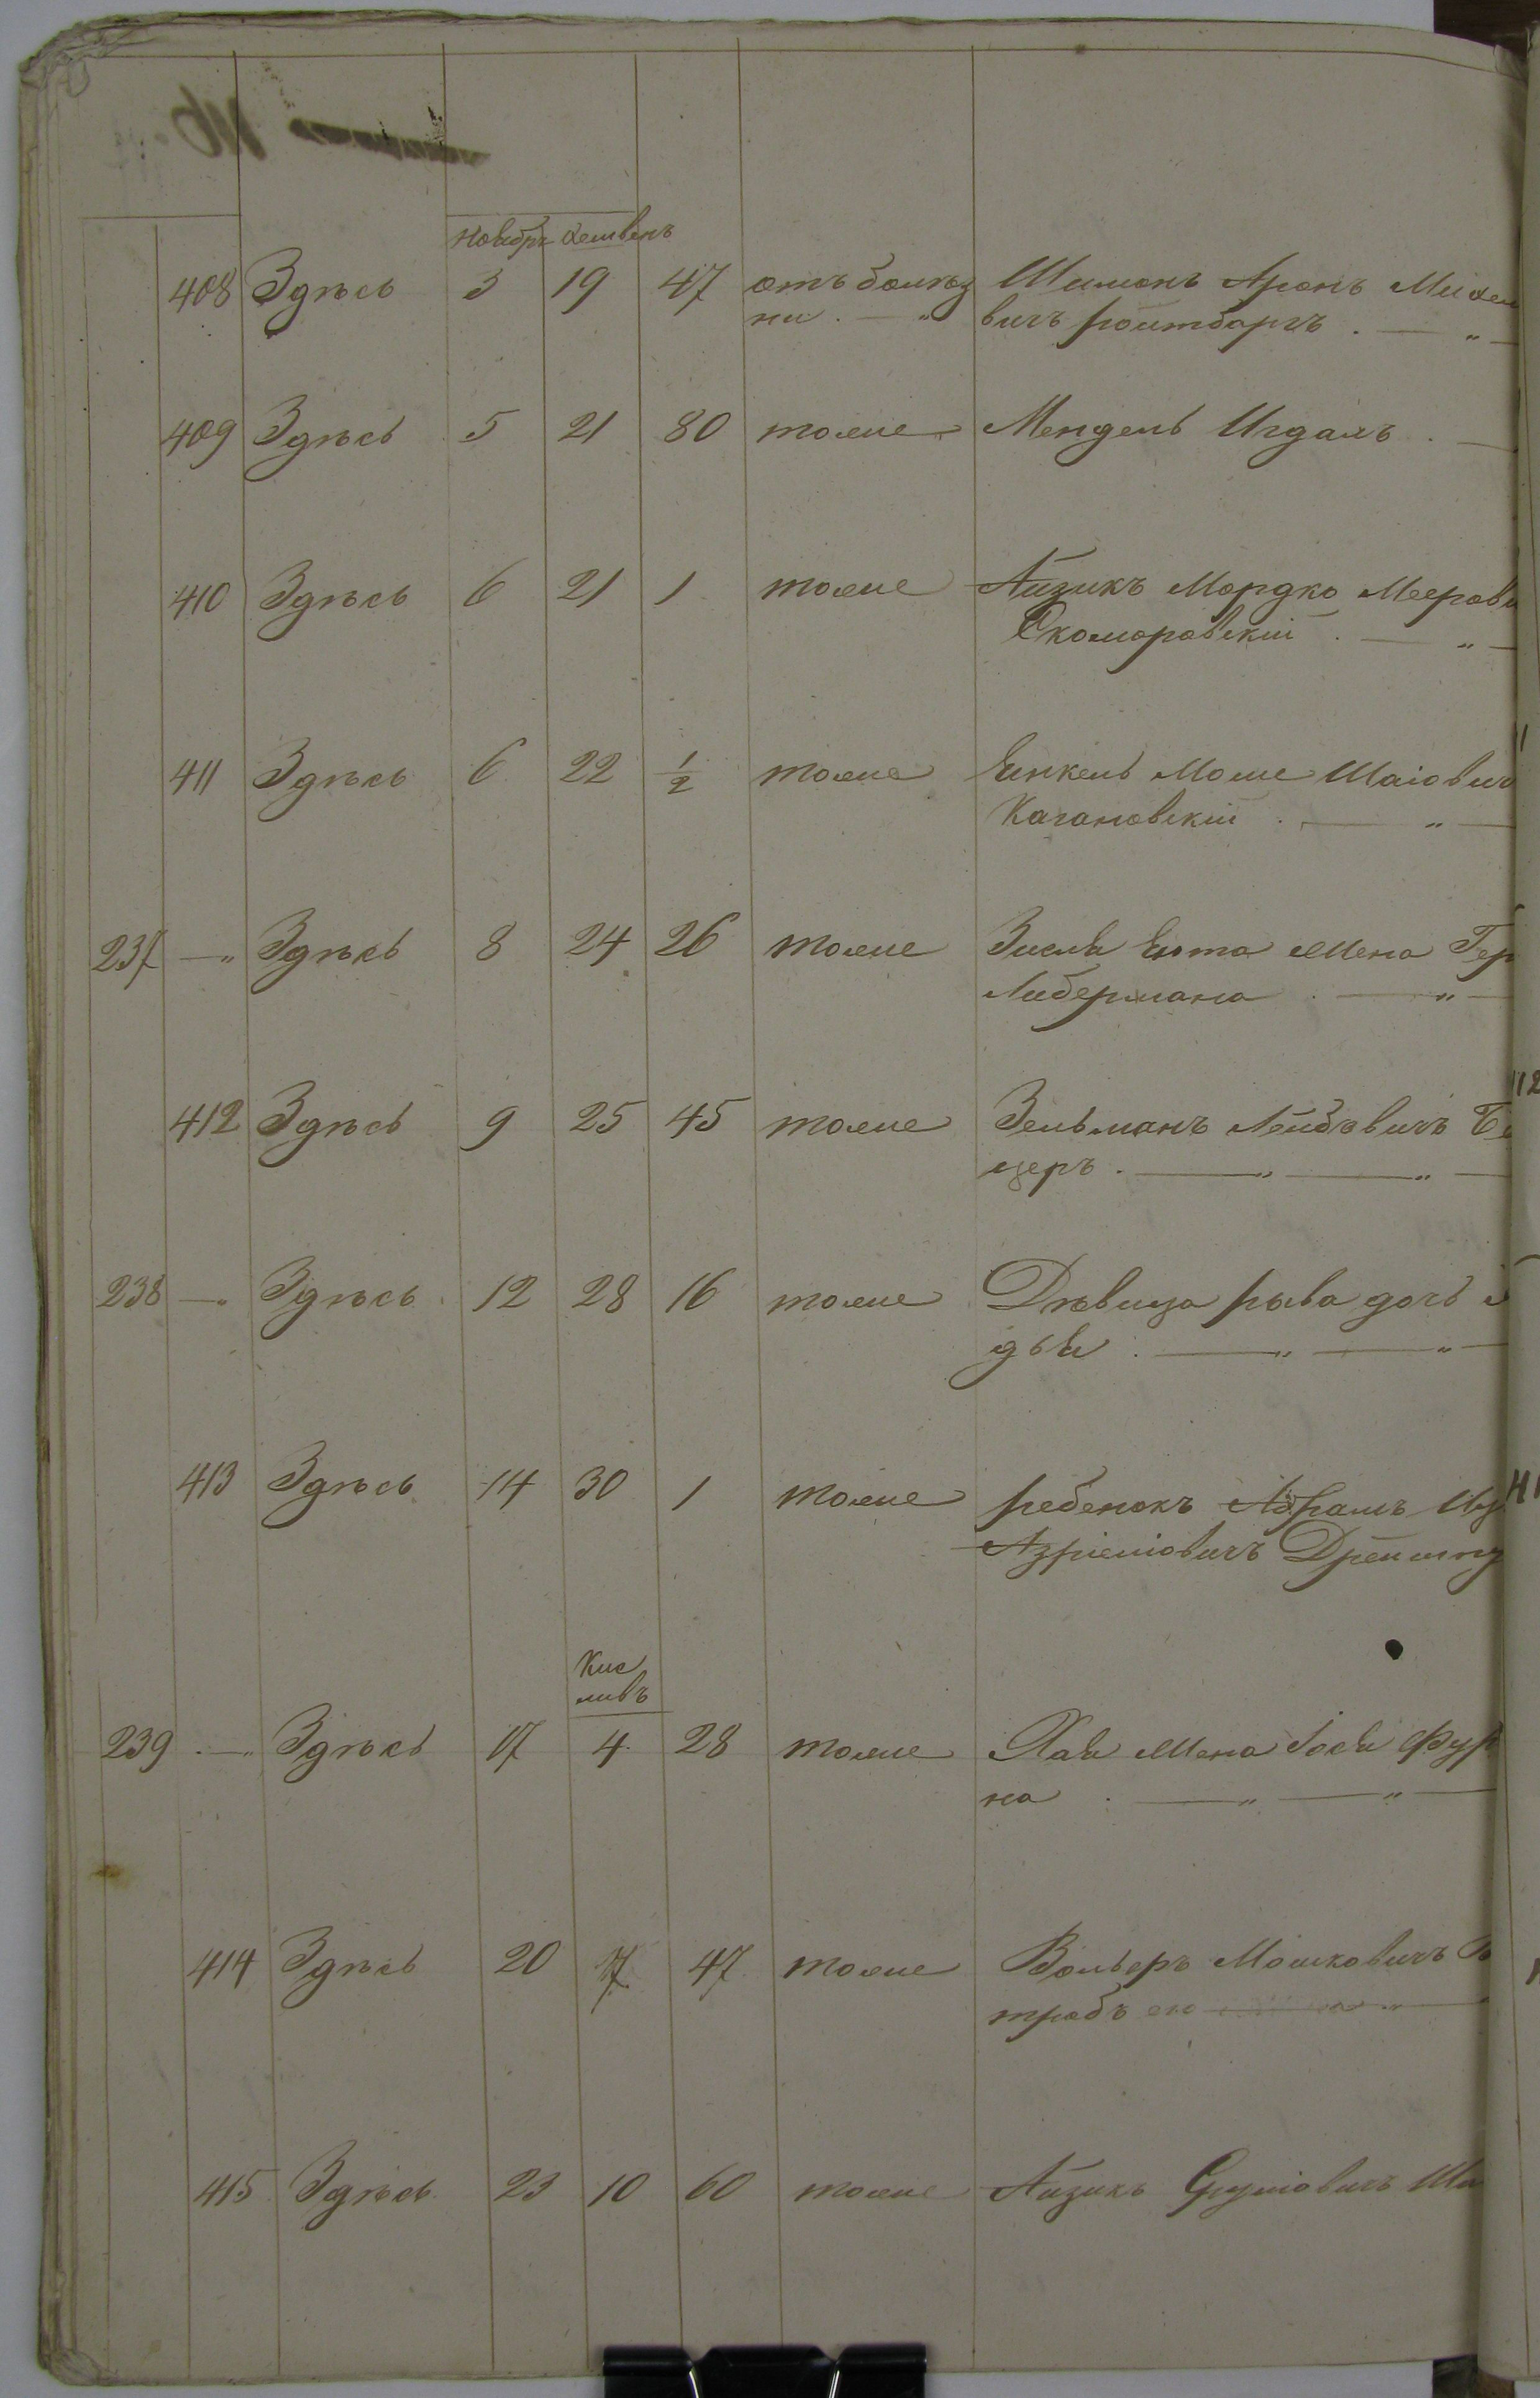 Ноябрь Хешвенъ
408 Здѣсь 3 19 47 отъ болѣз Шимонъ Аронъ Михел
ни . — " вичъ Ройтбаргъ . — " —
409 Здѣсь 5 21 80 тоже Мендель Игдалъ . —
410 Здѣсь 6 21 1 тоже Айзикъ Мордко Меерови
Скоморовскій . — " —
411 Здѣсь 6 22 1/2 тоже Янкель Моше Шаіовичъ
Кагановскій . — " —
237 — " Здѣсь 8 24 26 тоже Зисля Ента Жена Гер
Либермана . — " —
412 Здѣсь 9 25 45 тоже Зельманъ Лейбовичъ
церъ . — " — " —
238 — " Здѣсь 12 28 16 тоже Дѣвица Рыва дочь
дья . — " — " —
413 Здѣсь 14 30 1 тоже Ребенокъ Абрамъ Иц
Азріеліовичъ
Кис
ливъ
239 . — " Здѣсь 17 4 28 тоже Хая Жена Іося Фур
на . — " — " —
414 Здѣсь 20 7 47 тоже Вольеръ Мошковичъ
415 Здѣсь 23 10 60 тоже Айзикъ Сруліовичъ